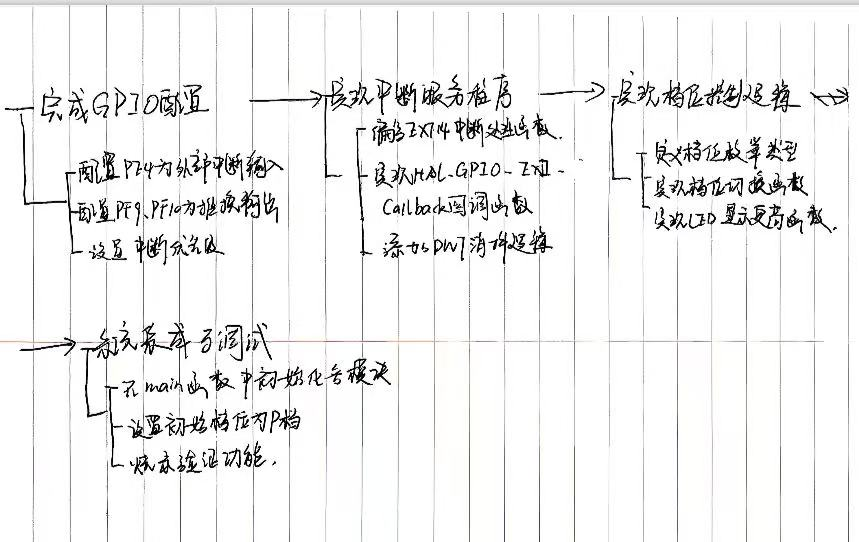 完成GPIO配置
配置PE4为外部中断输入
配置PF9、PF10为推挽输出
设置中断优先级
实现中断服务程序
编写EXTI4中断处理函数.
实现HAL-GPIO-EXTI-
Callback回调函数
添加DWT消抖逻辑
实现档位控制逻辑
定义档位枚举类型
实现档位切换函数
实现LED显示更新函数.
系统集成与调试
在main函数中初始化各模块
设置初始档位为P档
烧录验证功能.